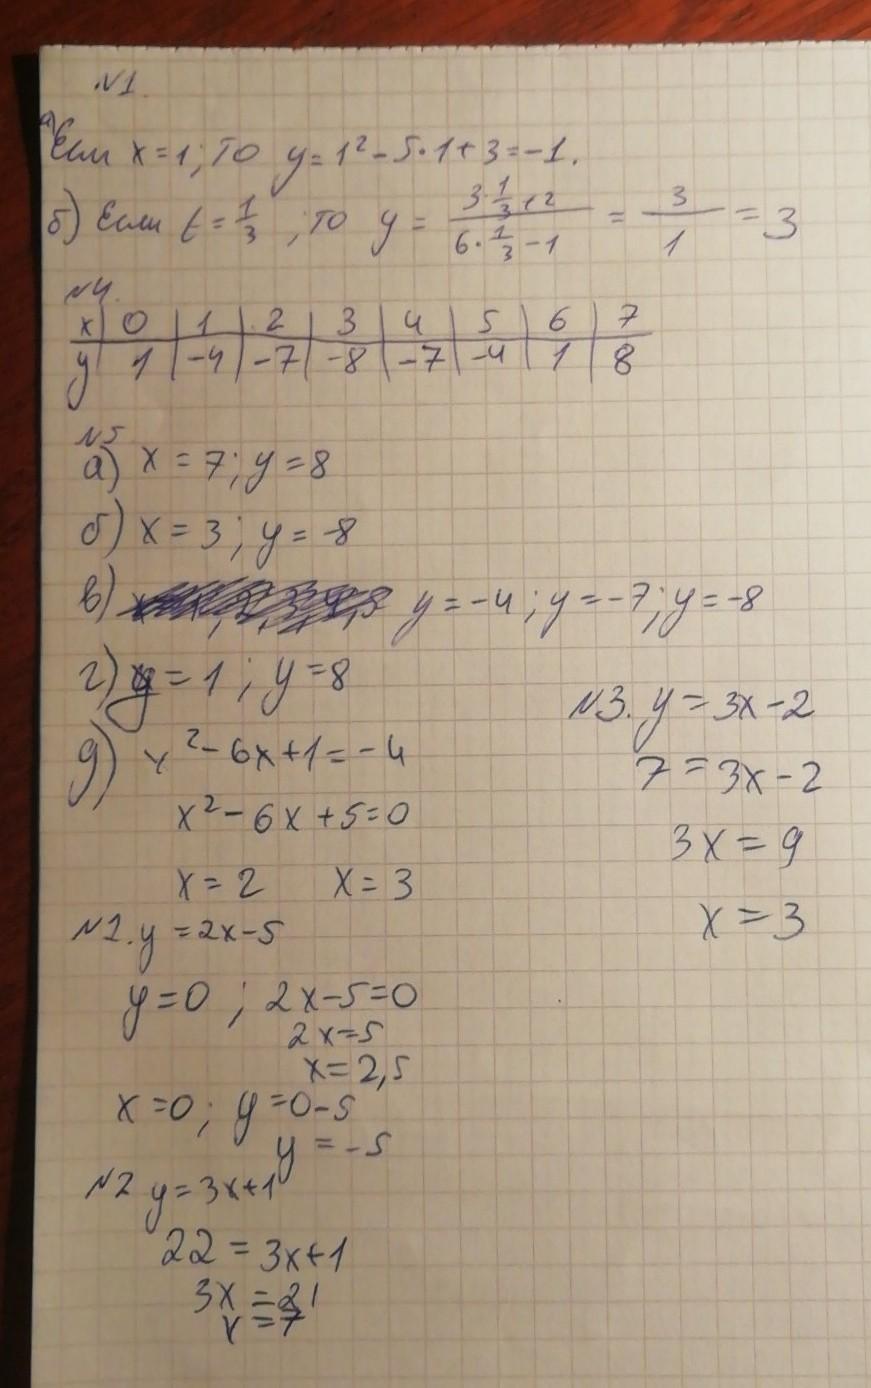 №1.
а) Если x = 1; то y = 1² - 5·1 + 3 = -1.
б) Если t = 1/3 ; то y = (3·1/3 + 2)/(6·1/3 - 1) = 3/1 = 3
№4.
x | 0 | 1 | 2 | 3 | 4 | 5 | 6 | 7
y | 1 | -4 | -7 | -8 | -7 | -4 | 1 | 8
№5
а) x = 7; y = 8
б) x = 3; y = -8
в) y = -4; y = -7; y = -8
г) y = 1; y = 8
д) x² - 6x + 1 = -4
x² - 6x + 5 = 0
x = 2 x = 3
№3. y = 3x - 2
7 = 3x - 2
3x = 9
x = 3
№1. y = 2x - 5
y = 0 ; 2x - 5 = 0
2x = 5
x = 2,5
x = 0; y = 0 - 5
y = -5
№2 y = 3x + 1
22 = 3x + 1
3x = 21
x = 7